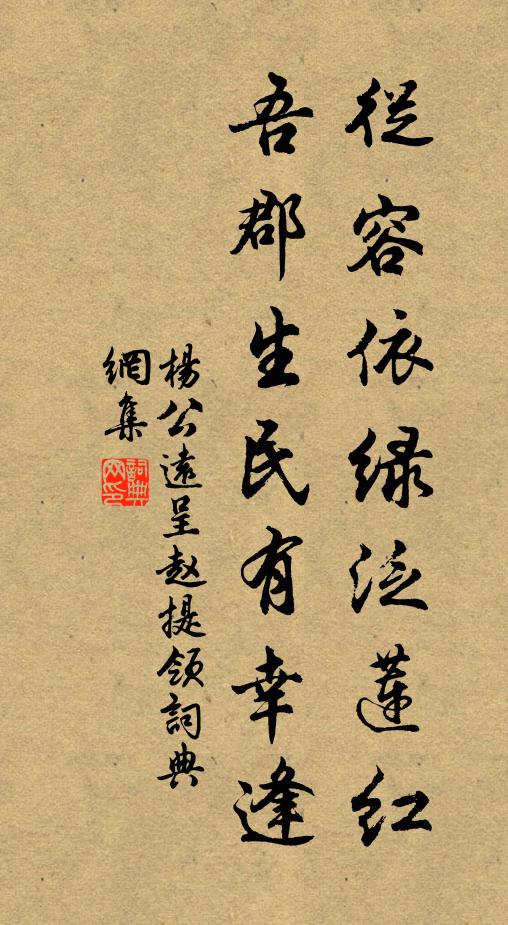 從容依緑泛蓮紅
吾郡生民有幸逢
楊公遠呈赵提领詞典
網集
詞典網印